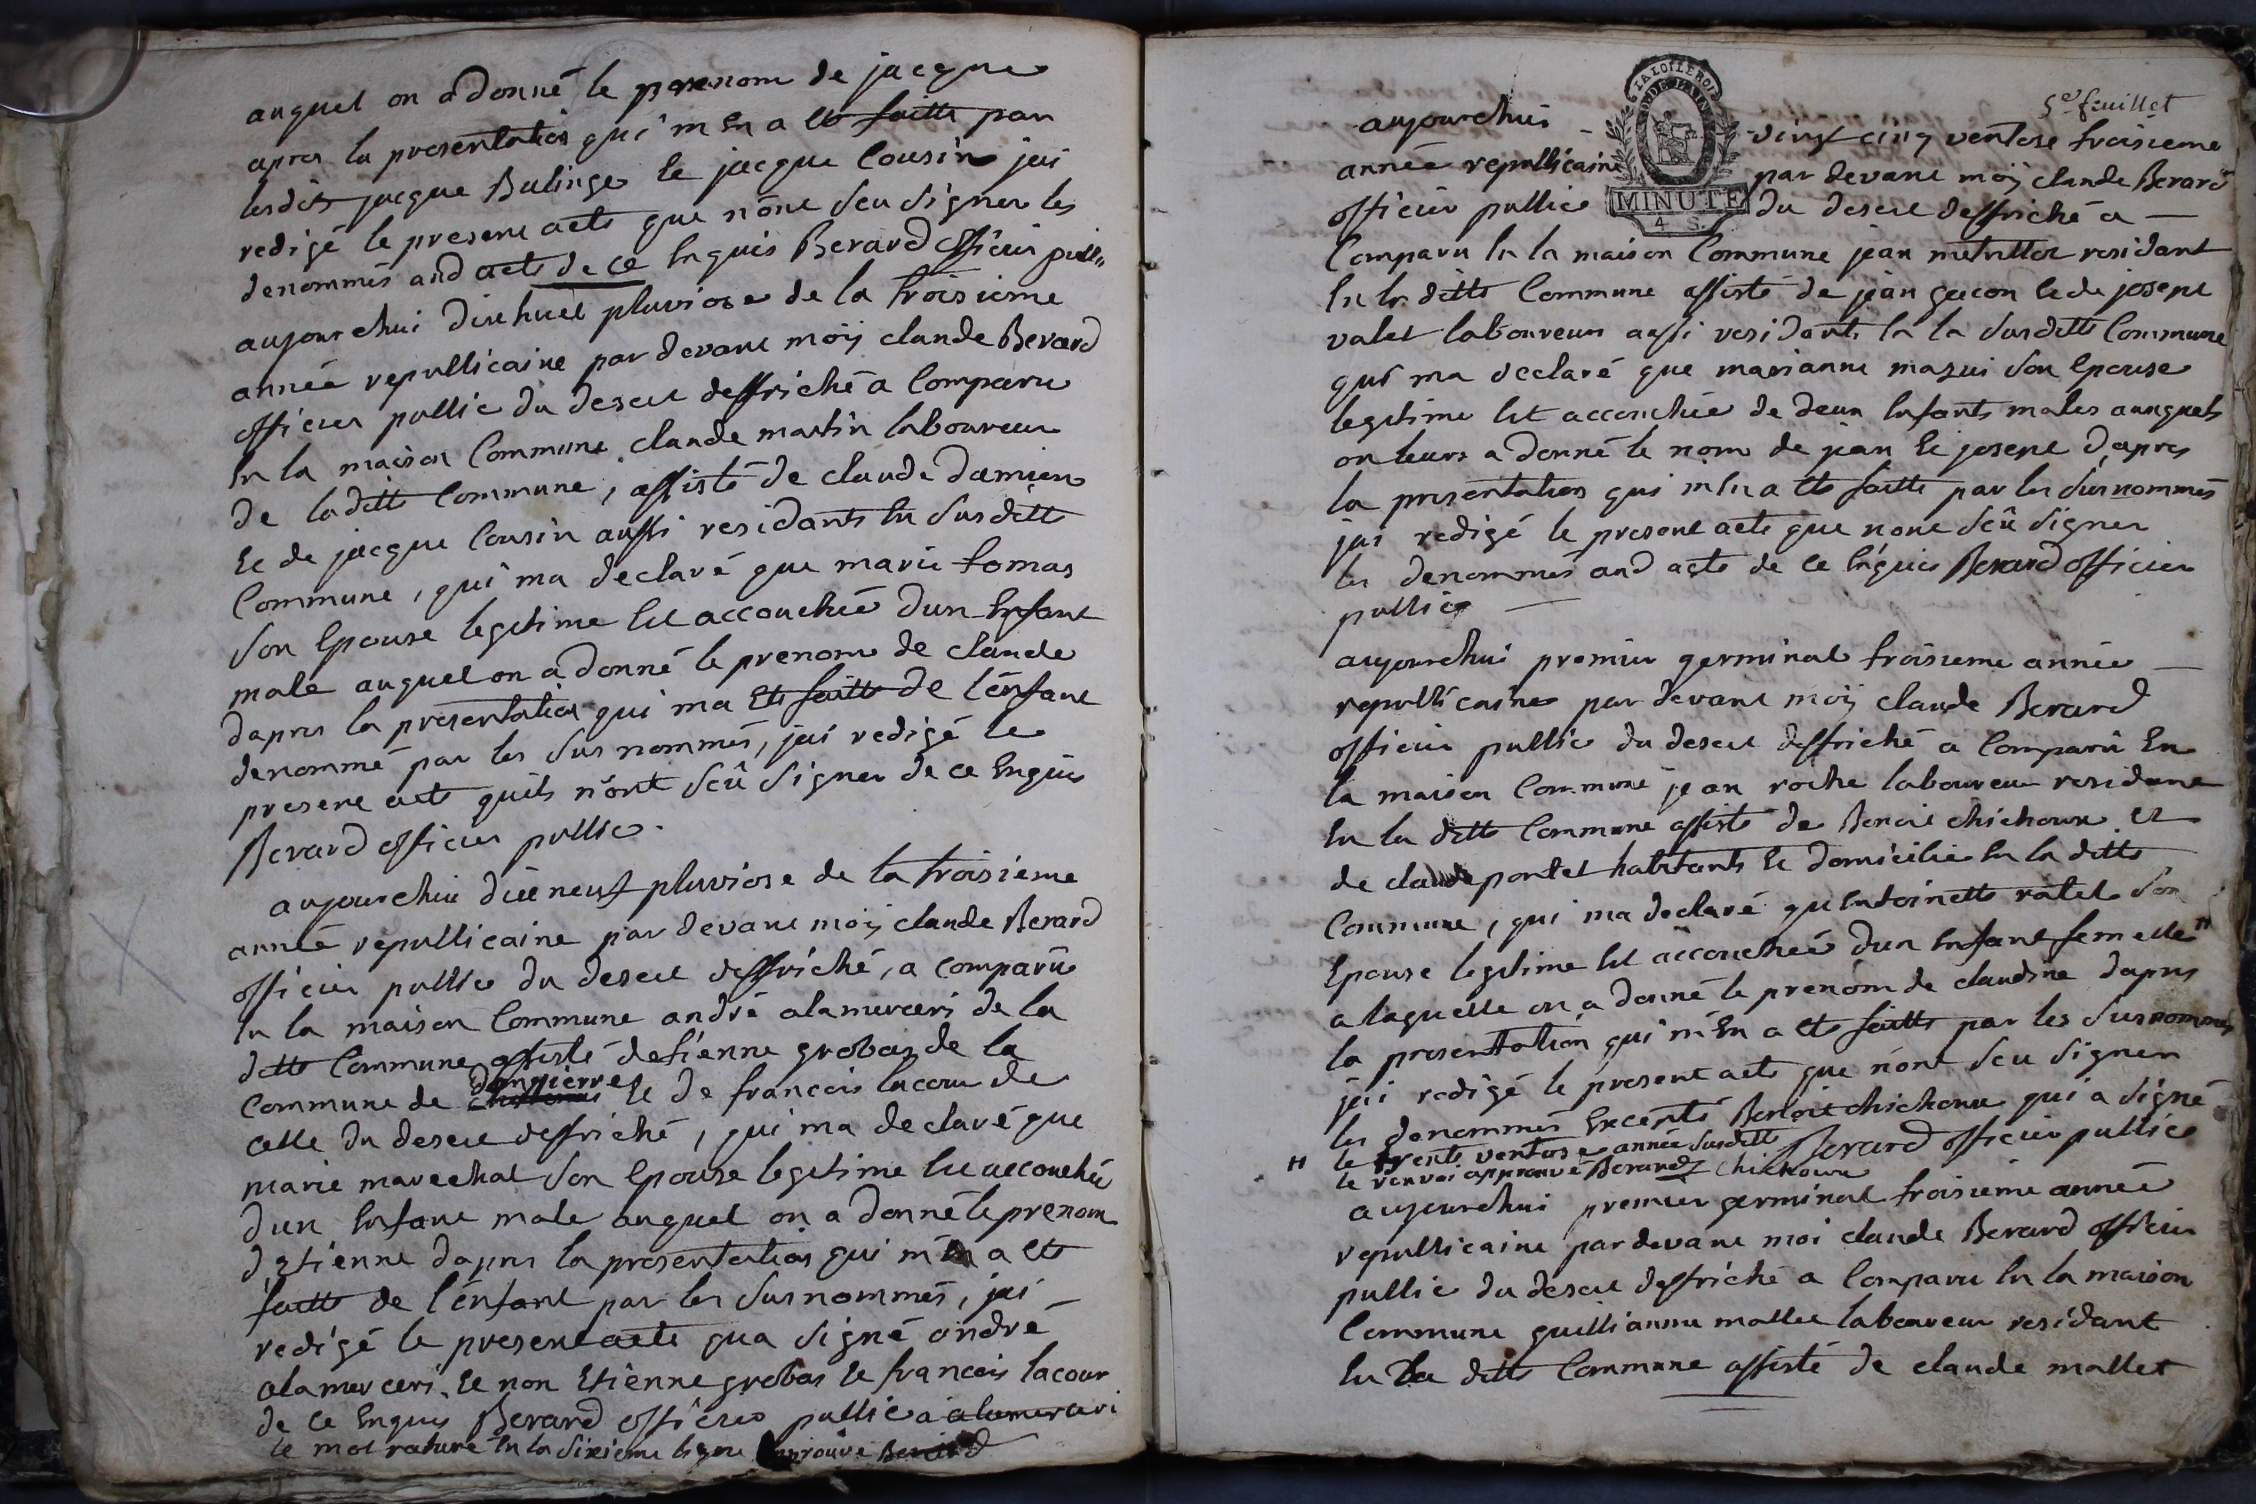 auquel on a donné le prenom de jacque
apres la presentation qui m'en a eté faitte par
lesdits jacque Bulinge Et jacque Cousin jai
redigé le present acte que nont seu signer les
denommés aud acte de ce Enquis Berard officier publi
aujourdhui dixhuit pluviose de la troisieme
année republicaine par devant moÿ claude Berard
officier public du desert deffriché a Comparu
En la maison Commune claude martin laboureur
de laditte Commune, assisté de claude damien
Et de jacque Cousin aussi residants En susditte
Commune, qui ma declaré que marie tomas
son Epouse legitime Est accouchée dun Enfant
male auquel on a donné le prenom de claude
dapres la presentation qui ma Eté faitte de l'énfant
denommé par les sus nommés, jai redigé le
present acte quils n'ont sçû signer de ce Enquis
Berard officier public.
aujourdhui dix neuf pluviose de la troisiéme
année republicaine par devant moÿ claude Berard
officier public du desert deffriché, a comparû
En la maison Commune andré alamerceri de la
ditte Commune assisté detienne grobas de la
dompierre
Commune de Et de francois lacour de
celle du desert deffriché, qui ma declaré que
marie marechal son Epouse legitime Est accouchée
dun Enfant male auquel on a donné le prenom
d'Etienne dapres la presentation qui m'en a eté
faitte de l'énfant par les susnommés, jai
redigé le present acte qua signé andré
alamerceri, Et non Etienne grobas Et francois lacour
de ce Enquis Berard officier public a alamerceri
le mot raturé En la sixieme ligne approuvé Berard
5e feuillet
LA LOI LE ROI
MINUTE
4 S.
aujourdhui vingt cinq ventose troisieme
année republicaine par devant moÿ claude Berard
officier public du desert deffriché a
Comparu En la maison Commune jean metrillot residant
En la ditte Commune assisté de jean gacon Et de josept
valet laboureurs aussi residants En la susditte Commune
qui ma declaré que marianne mazui son Epouse
legitime Est accouchée de deux Enfants males auxquels
on leurs a donné le nom de jean Et josept d'apres
la presentation qui m'en a eté faitte par les susnommés
jai redigé le present acte que nont sçû signer
les denommés aud acte de ce Enquis Berard officier
public
aujourdhui premier germinal troisieme année
republicaine par devant moÿ claude Berard
officier public du desert deffriché a Comparû En
la maison Commune jean roche laboureur residant
En la ditte Commune assisté de Benoit chichoux et
de claude pontet habitants Et domicilié En la ditte
Commune, qui ma declaré qu'Entoinette ratel son
Epouse legitime Est accouchée dun Enfant femelle H
a laquelle on a donné le prenom de claudine dapres
la presentation qui m'en a eté faitte par les susnommés
jai redigé le present acte que nont seu signer
les denommés Excepté Benoit chichoux qui a signé
H le trente ventose année susditte Berard officier public
le renvoi approuvé Berard Chichoux
aujourdhui premier germinal troisieme année
republicaine par devant moi claude Berard officier
public du desert deffriché a Comparu En la maison
Commune guilliaume mallet laboureur residant
En la ditte Commune assisté de claude mallet